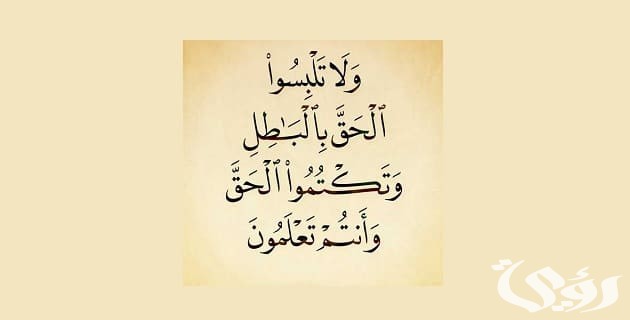 وَلَا تَلْبِسُوا۟
ٱلْحَقَّ بِٱلْبَـٰطِلِ
وَتَكْتُمُوا۟ ٱلْحَقَّ
وَأَنتُمْ تَعْلَمُونَ
رؤية